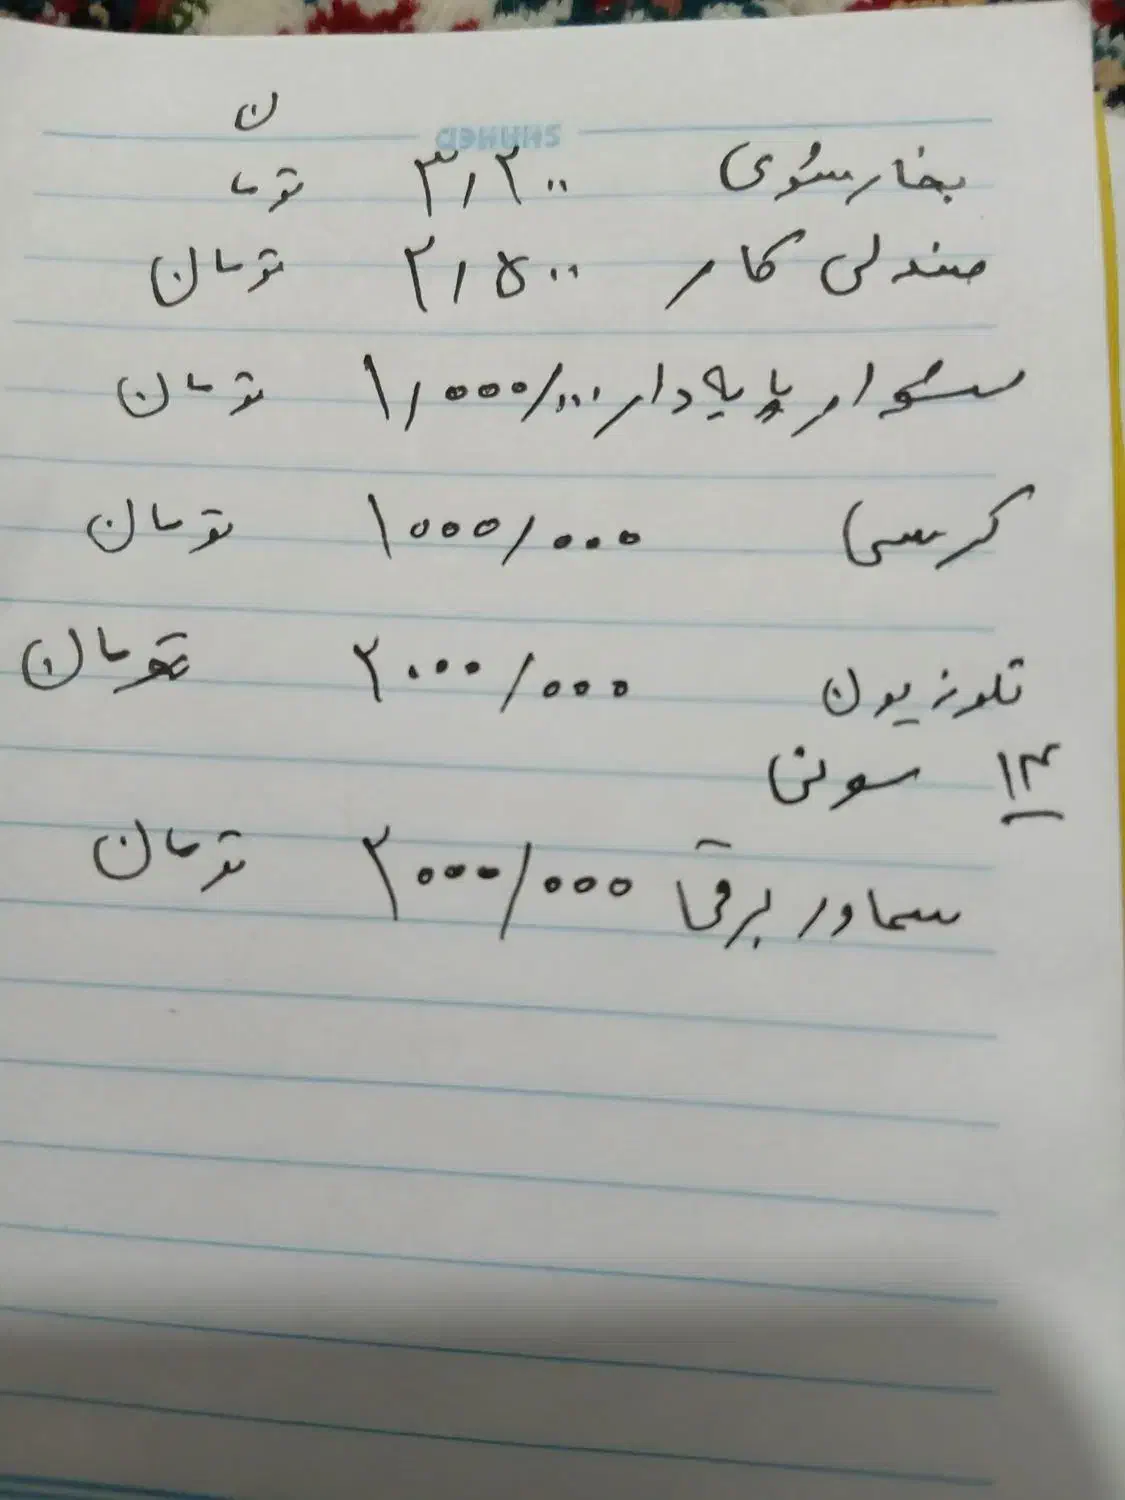 بخارشوی ۳٫۲۰۰ تومان
صندلی کار ۲٫۵۰۰ تومان
سشوار پایه دار ۱٫۰۰۰/۰۰۰ تومان
کرسی ۱۰۰۰/۰۰۰ تومان
تلوزیون ۲۰۰۰/۰۰۰ تومان
۱۴ سونی
سماور برقی ۲۰۰۰/۰۰۰ تومان